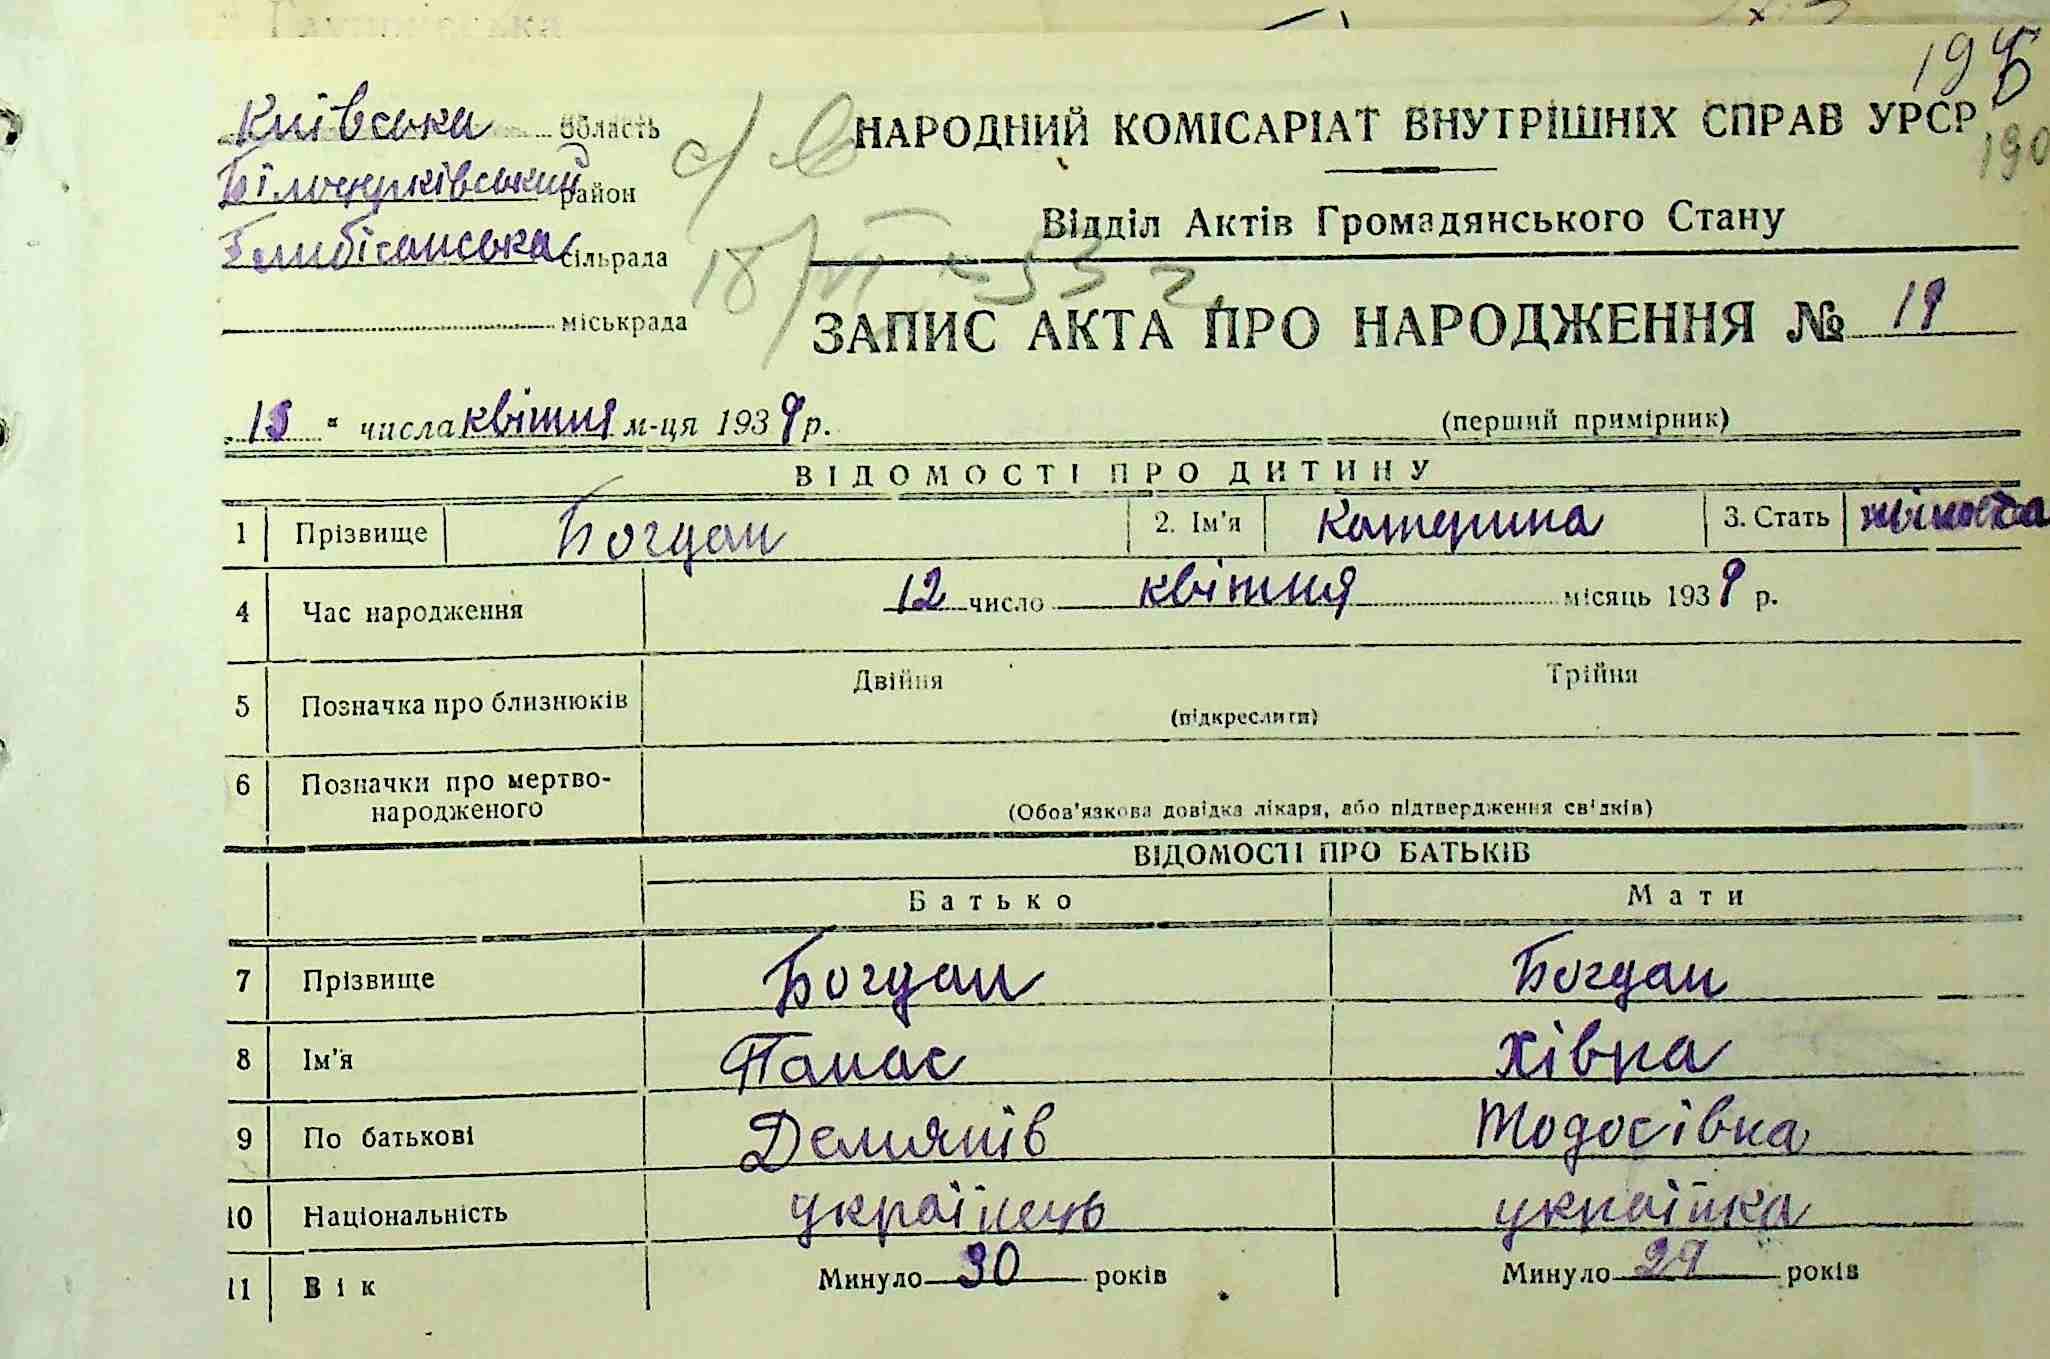 Київська область
Білоцерківський район
сільрада
міськрада
190
НАРОДНИЙ КОМІСАРІАТ ВНУТРІШНІХ СПРАВ УРСР
Відділ Актів Громадянського Стану
с/в
18/VI-53 г.
ЗАПИС АКТА ПРО НАРОДЖЕННЯ № 19
"15" числа квітня м-ця 1939 р.
(перший примірник)
ВІДОМОСТІ ПРО ДИТИНУ
1 Прізвище Богдан 2. Ім'я Катерина 3. Стать жіноча
4 Час народження 12 число квітня місяць 1939 р.
5 Позначка про близнюків Двійня Трійня
(підкреслити)
6 Позначки про мертво-
народженого
(Обов'язкова довідка лікаря, або підтвердження свідків)
ВІДОМОСТІ ПРО БАТЬКІВ
Батько Мати
7 Прізвище Богдан Богдан
8 Ім'я Панас Хівря
9 По батькові Демянів Тодосівна
10 Національність українець українка
11 Вік Минуло 30 років Минуло 29 років